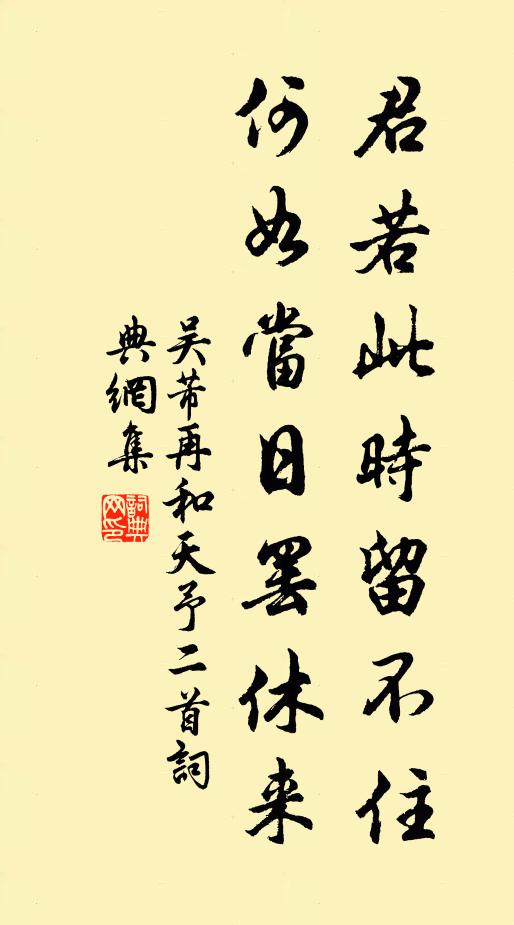 君若此時留不住
何如當日罷休来
吴芾再和天予二首詞
典網集
詞典网印